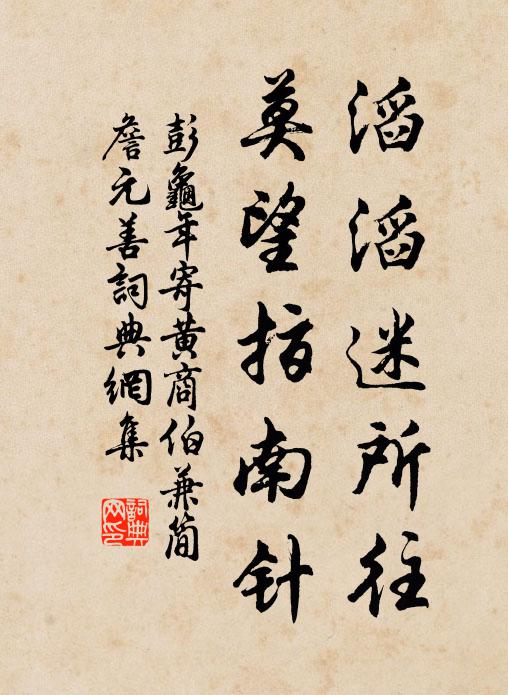 滔滔迷所往
莫望指南针
彭龜年寄黃商伯兼简
詹元善詞典網集
詞典网印